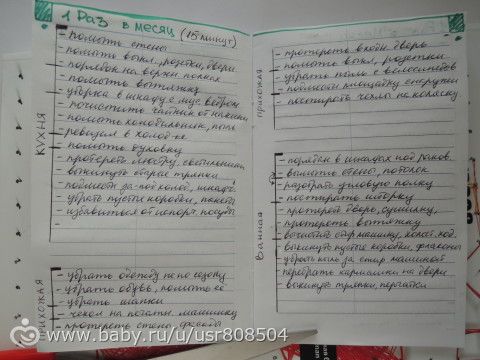 1 раз в месяц (15 минут)
КУХНЯ
- помыть стены
- помыть выкл., розетки, двери
- порядок на верхн. полках
- помыть вытяжку
- уборка в шкафу с мус. ведром
- почистить чайник от накипи
- помыть холодильник,
- ревизия в холод-ке
- помыть духовку
- протереть люстру, светильники
- выкинуть старые тряпки
- подмести за-под холод., шкафа
- убрать пустые коробки, пакеты
- избавиться от испорт. посуды
-
ПРИХОЖАЯ
- убрать одежду не по сезону
- убрать обувь, помыть её
- убрать шапки
- чехол на машинку
- протереть стены, фасады
ПРИХОЖАЯ
- протереть входн. дверь
- помыть выкл., розетки
- убрать пыль с велосипедов
- подмести площадку снаружи
- постирать чехлы на коляску
Ванная
- порядок в шкафах под раков.
- помыть стены, потолок
- разобрать угловую полку
- постирать шторку
- протереть дверь, сушилку,
- протереть вытяжку
- вычистить стир. машинку,
- выкинуть пустые коробки, флаконы
- убрать за стир. машинкой
- перебрать кармашки на двери
- выкинуть тряпки, перчатки
www.baby.ru/u/usr808504